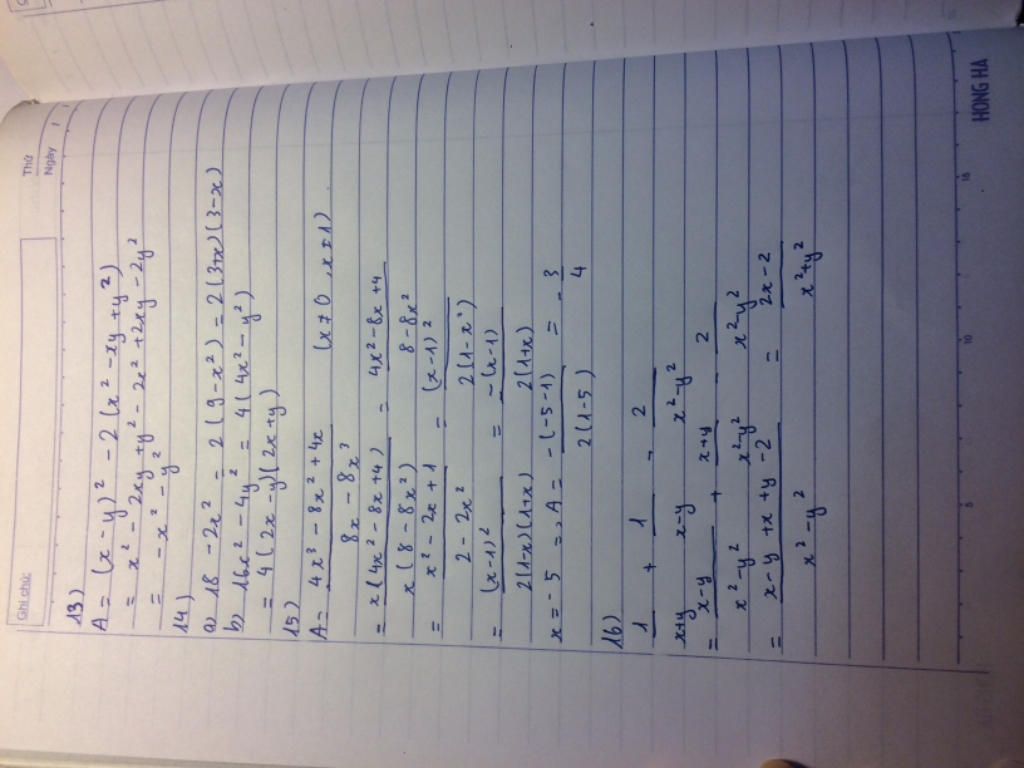 Ghi chú:
Thứ
Ngày
13)
A = (x - y)² - 2(x² - xy + y²)
= x² - 2xy + y² - 2x² + 2xy - 2y²
= - x² - y²
14)
a) 18 - 2x² = 2(9 - x²) = 2(3+x)(3-x)
b) 16x² - 4y² = 4(4x² - y²)
= 4(2x - y)(2x + y)
15)
A = (4x³ - 8x² + 4x)/(8x - 8x³) (x ≠ 0, x ± 1)
= x(4x² - 8x + 4)/x(8 - 8x²) = (4x² - 8x + 4)/(8 - 8x²)
= (x² - 2x + 1)/(2 - 2x²) = (x - 1)²/2(1 - x²)
= (x - 1)²/2(1 - x)(1 + x) = -(x - 1)/2(1 + x)
x = -5 => A = -(-5 - 1)/2(1 - 5) = - 3/4
16)
1/(x+y) + 1/(x-y) - 2/(x² - y²)
= (x - y)/(x² - y²) + (x + y)/(x² - y²) - 2/(x² - y²)
= (x - y + x + y - 2)/(x² - y²) = (2x - 2)/(x² + y²)
5 10 15
HONG HA